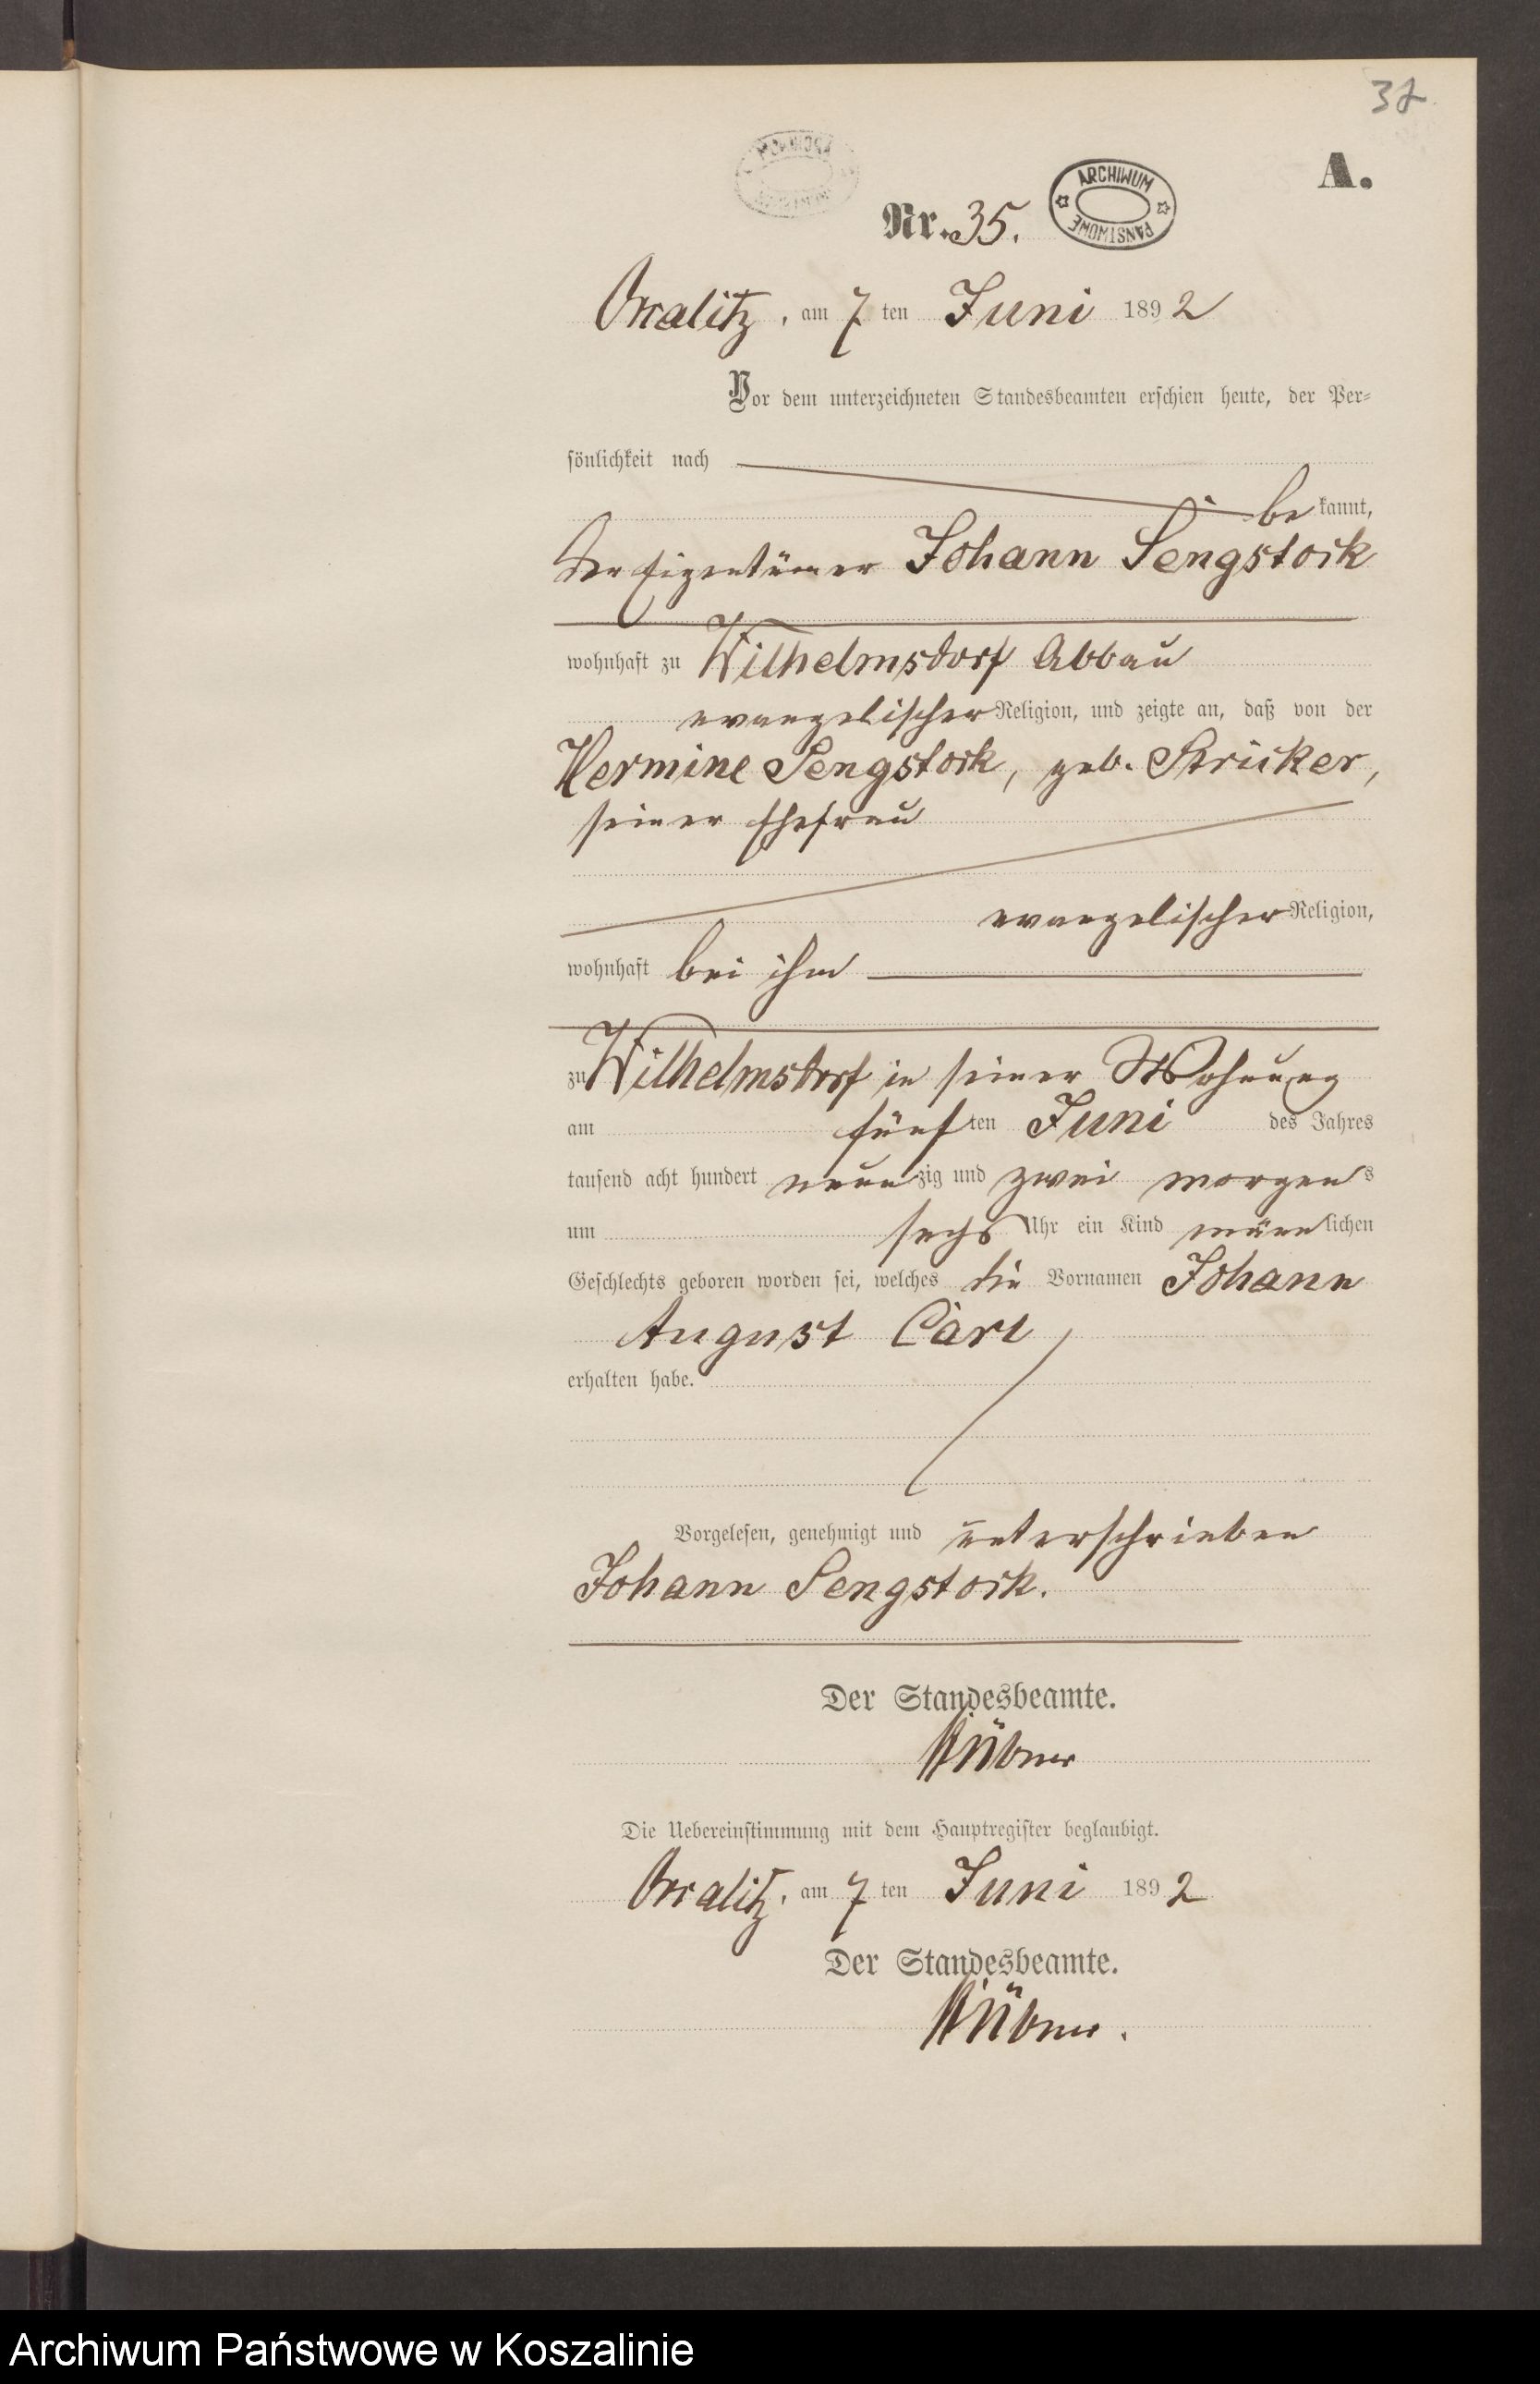 37
A.
ARCHIWUM PAŃSTWOWE
Nr. 35.
am 7 ten Juni 1892
Vor dem unterzeichneten Standesbeamten erschien heute, der Per=
sönlichkeit nach
be kannt,
der Eigentümer Johann Sengstock
wohnhaft zu Wilhelmsdorf Abbau
evangelischer Religion, und zeigte an, daß von der
Hermine Sengstock, geb. Stricker,
seiner Ehefrau
evangelischer Religion,
wohnhaft bei ihm
zu Wilhelmsdorf in seiner Wohnung
am fünf ten Juni des Jahres
tausend acht hundert neun zig und zwei morgen s
um sechs Uhr ein Kind männ lichen
Geschlechts geboren worden sei, welches die Vornamen Johann
August Carl
erhalten habe.
Vorgelesen, genehmigt und unterschrieben
Johann Sengstock.
Der Standesbeamte.
Die Uebereinstimmung mit dem Hauptregister beglaubigt.
am 7 ten Juni 1892
Der Standesbeamte.
Archiwum Państwowe w Koszalinie